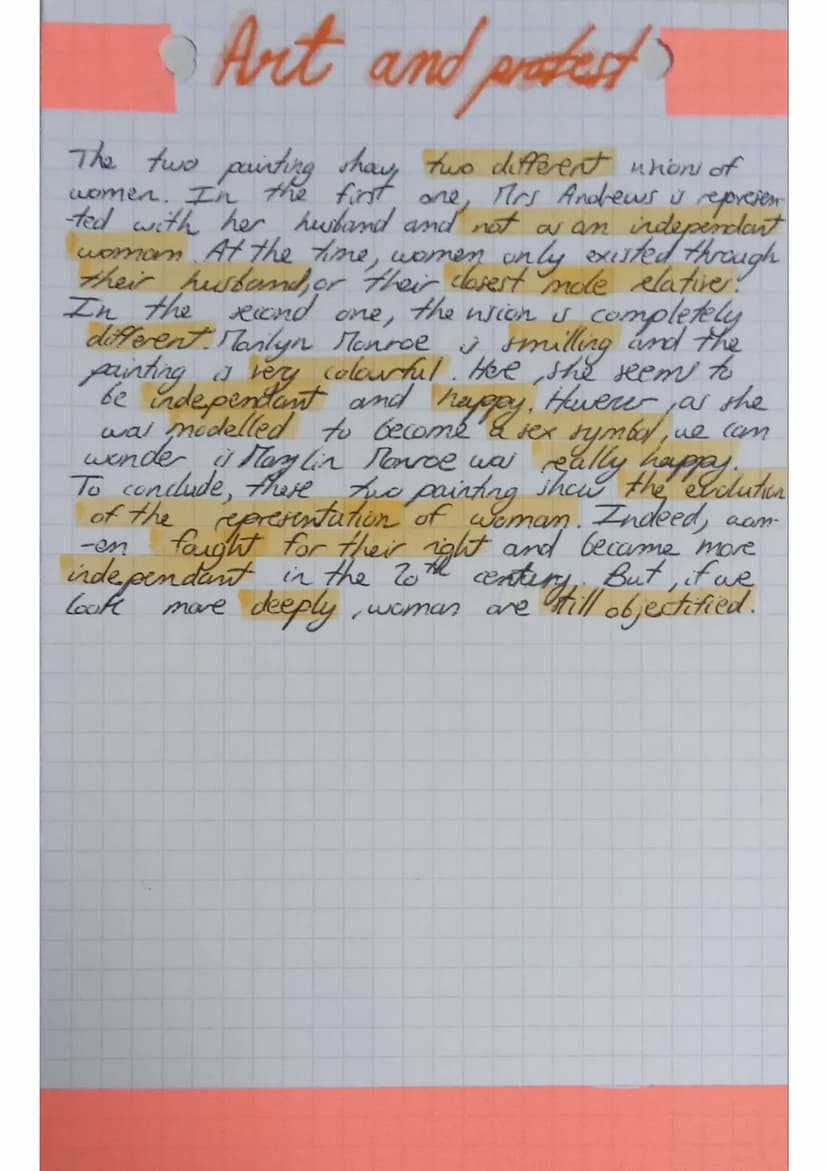 Art and protest
The two painting show two different visions of
women. In the first one, Mrs Andrews is represen-
-ted with her husband and not as an independant
woman. At the time, women only existed through
their husband, or their closest male relatives.
In the second one, the vision is completely
different. Marilyn Monroe is smilling and the
painting is very colourful. Here, she seems to
be independant and happy. However, as she
was modelled to become a sex symbol, we can
wonder is Marylin Monroe was really happy.
To conclude, these two painting show the evolution
of the representation of woman. Indeed, wom-
-en faught for their right and became more
independant in the 20th century. But, if we
look more deeply, woman are still objectified.